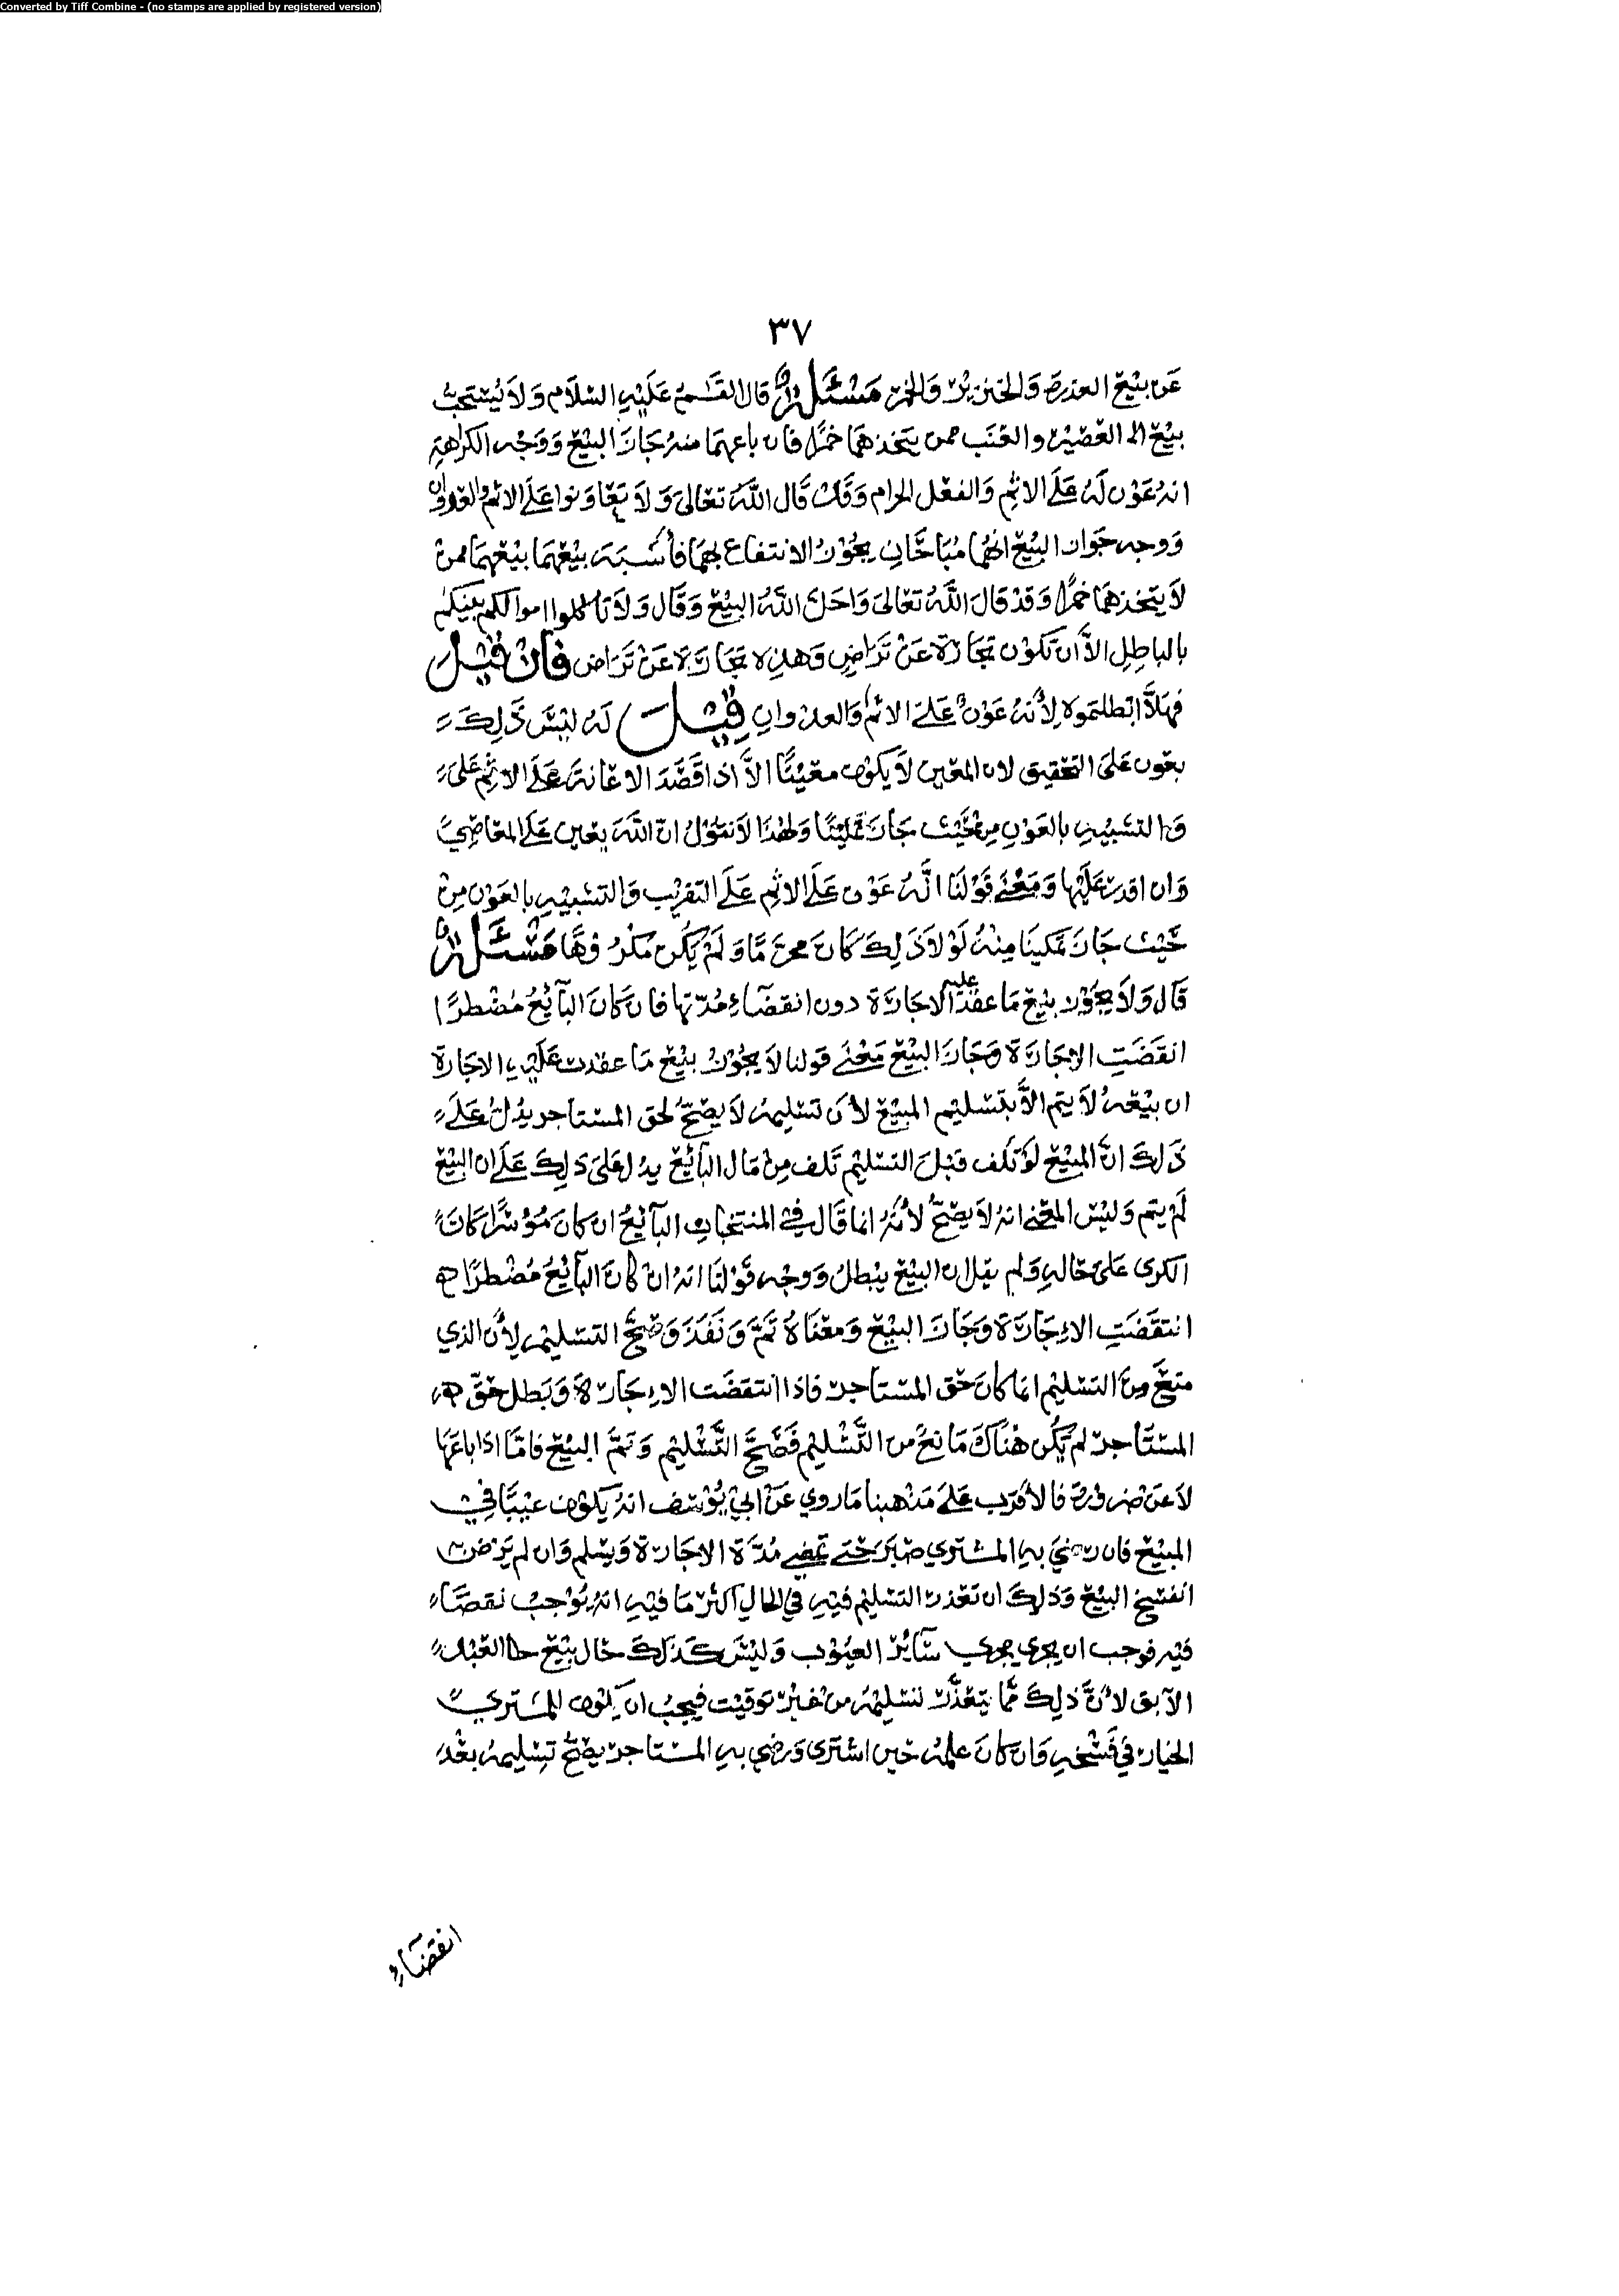 Converted by Tiff Combine - (no stamps are applied by registered version)
٣٧
عن بيع العذرة والخنزير والخمر مسئلة قال القسم عليه السلام ولا يستحب
بيع العصير والعنب ممن يتخذهما خمرا فان باعهما منه جاز البيع ووجه الكراهة
انه عون له على الاثم والفعل الحرام وقد قال الله تعالى ولا تعاونوا على الاثم والعدوان
ووجه جواز البيع انهما مباحان يجوز الانتفاع بهما فأشبه بيعهما بيعهما ممن
لا يتخذهما خمرا وقد قال الله تعالى واحل الله البيع وقال ولا تاكلوا اموالكم بينكم
بالباطل الا ان تكون تجارة عن تراض وهذه تجارة عن تراض فان قيل
فهلا ابطلتموه لأنه عون على الاثم والعدوان قيل له ليس ذلك
بعون على التحقيق لان المعين لا يكون معينا الا اذا قصد الاعانة على الاثم على
والتشبيه بالعون من حيث جاز تمكينا ولهذا لا نقول ان الله يعين على المعاصي
وان اقدر عليها ومعنى قولنا انه عون على الاثم على التقريب والتشبيه بالعون من
حيث جاز تمكينا منه لولا ذلك كان محرما ولم يكن مكروها مسئلة
قال ولا يجوز بيع ما عقد عليه الاجارة دون انقضاء مدتها فان كان البآئع مضطرا
انقضت الإجارة وجاز البيع معنى قولنا لا يجوز بيع ما عقدت عليه الاجارة
ان بيعه لا يتم الا بتسليم المبيع لأن تسليمه لا يصح لحق المستاجر يدل على
ذلك ان المبيع لو تلف قبل التسليم تلف من مال البآئع يدل على ذلك على ان البيع
لم يتم وليس المعنى انه لا يصح لأنه انما قال في المنتخب البآئع ان كان موسرا كان
الكرى على حاله ولم يقل ان البيع يبطل ووجه قولنا انه ان كان البآئع مضطرا
انتقضت الإجارة وجاز البيع ومعناه تم ونفذ وصح التسليم لأن الذي
منع من التسليم انما كان حق المستاجر فاذا انتقضت الإجارة وبطل حق
المستاجر لم يكن هناك مانع من التسليم فصح التسليم وتم البيع فاما اذا باعها
لا عن ضرورة فالأقرب على مذهبنا ما روي عن ابي يوسف انه يكون عيبا في
المبيع فان رضي به المشتري صبر حتى تمضي مدة الاجارة ويسلم وان لم يرض
انفسخ البيع وذلك ان تعذر التسليم فيه في الحال اكثر ما فيه انه يوجب نقصا
فيه فوجب ان يجري مجرى سآئر العيوب وليس كذلك حال بيع العبد
الآبق لأن ذلك مما يتعذر تسليمه من غير توقيت فيجب ان يكون للمشتري
الخيار في فسخه وان كان علمه حين اشترى ورضي به المستاجر يصح تسليمه بعد
انقضاء